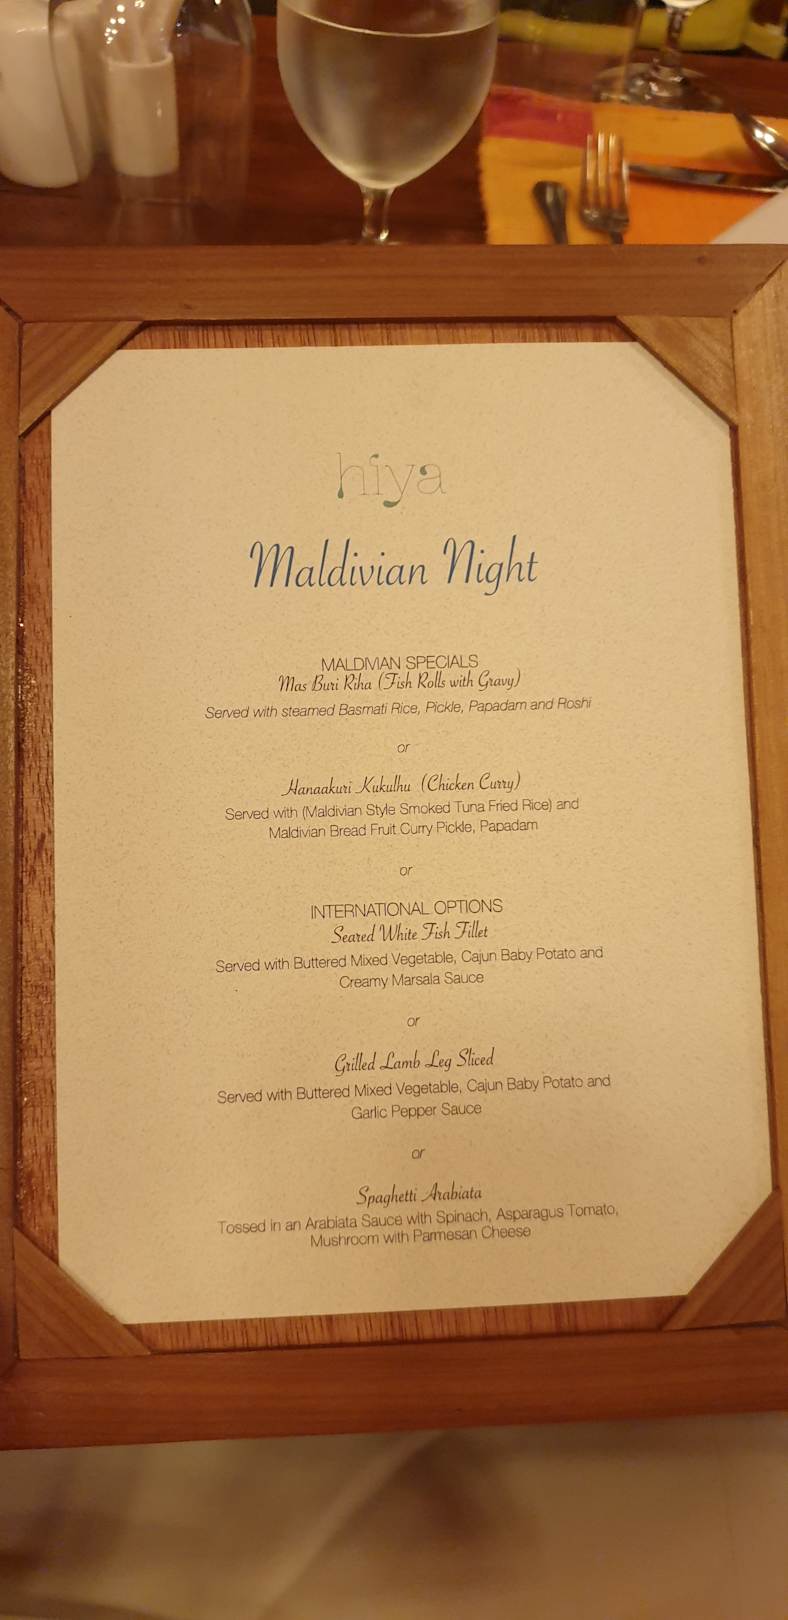 hiya
Maldivian Night
MALDIVIAN SPECIALS
Mas Buri Riha (Fish Rolls with Gravy)
Served with steamed Basmati Rice, Pickle, Papadam and Roshi
or
Hanaakuri Kukulhu (Chicken Curry)
Served with (Maldivian Style Smoked Tuna Fried Rice) and
Maldivian Bread Fruit Curry Pickle, Papadam
or
INTERNATIONAL OPTIONS
Seared White Fish Fillet
Served with Buttered Mixed Vegetable, Cajun Baby Potato and
Creamy Marsala Sauce
or
Grilled Lamb Leg Sliced
Served with Buttered Mixed Vegetable, Cajun Baby Potato and
Garlic Pepper Sauce
or
Spaghetti Arabiata
Tossed in an Arabiata Sauce with Spinach, Asparagus Tomato,
Mushroom with Parmesan Cheese